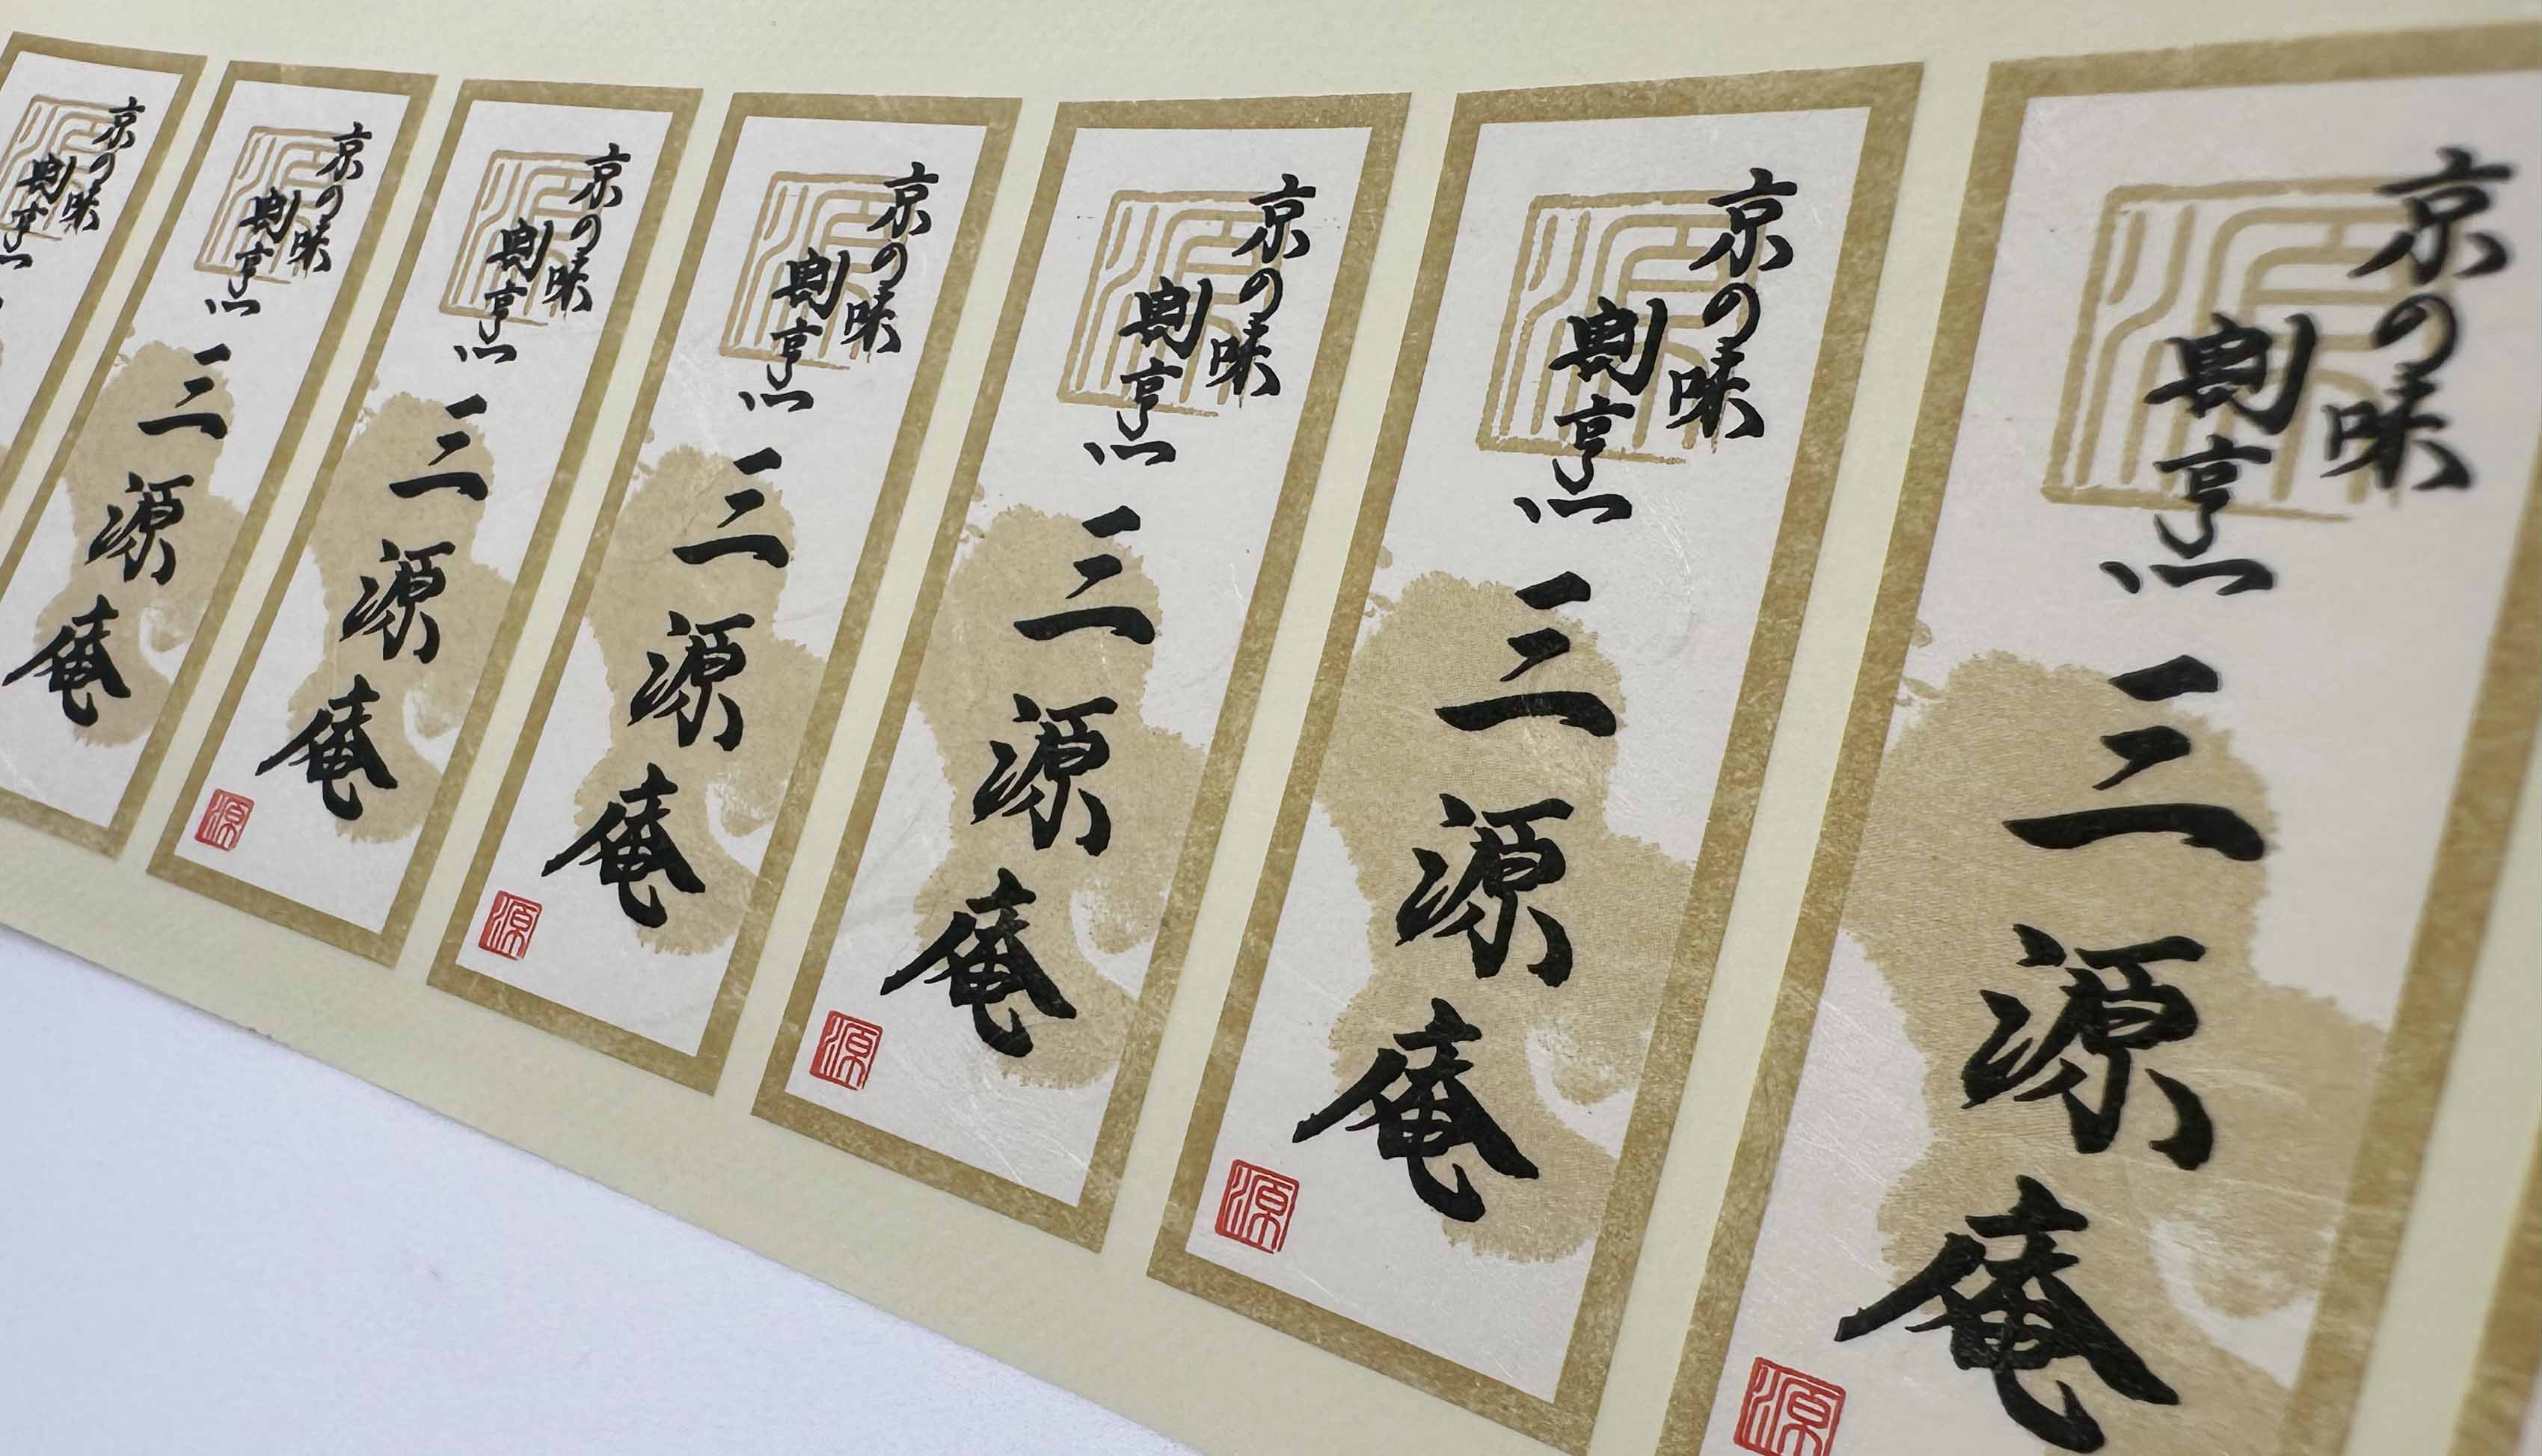 京の味
割烹
三源庵
源
源
京の味
割烹
三源庵
源
源
京の味
割烹
三源庵
源
源
京の味
割烹
三源庵
源
源
京の味
割烹
三源庵
源
源
京の味
割烹
三源庵
源
源
京の味
割烹
源